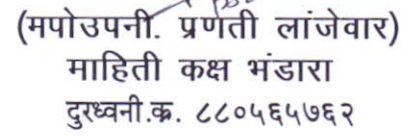 (मपोउपनी. प्रणती लांजेवार)
माहिती कक्ष भंडारा
दुरध्वनी.क्र. ८८०५६५७६२